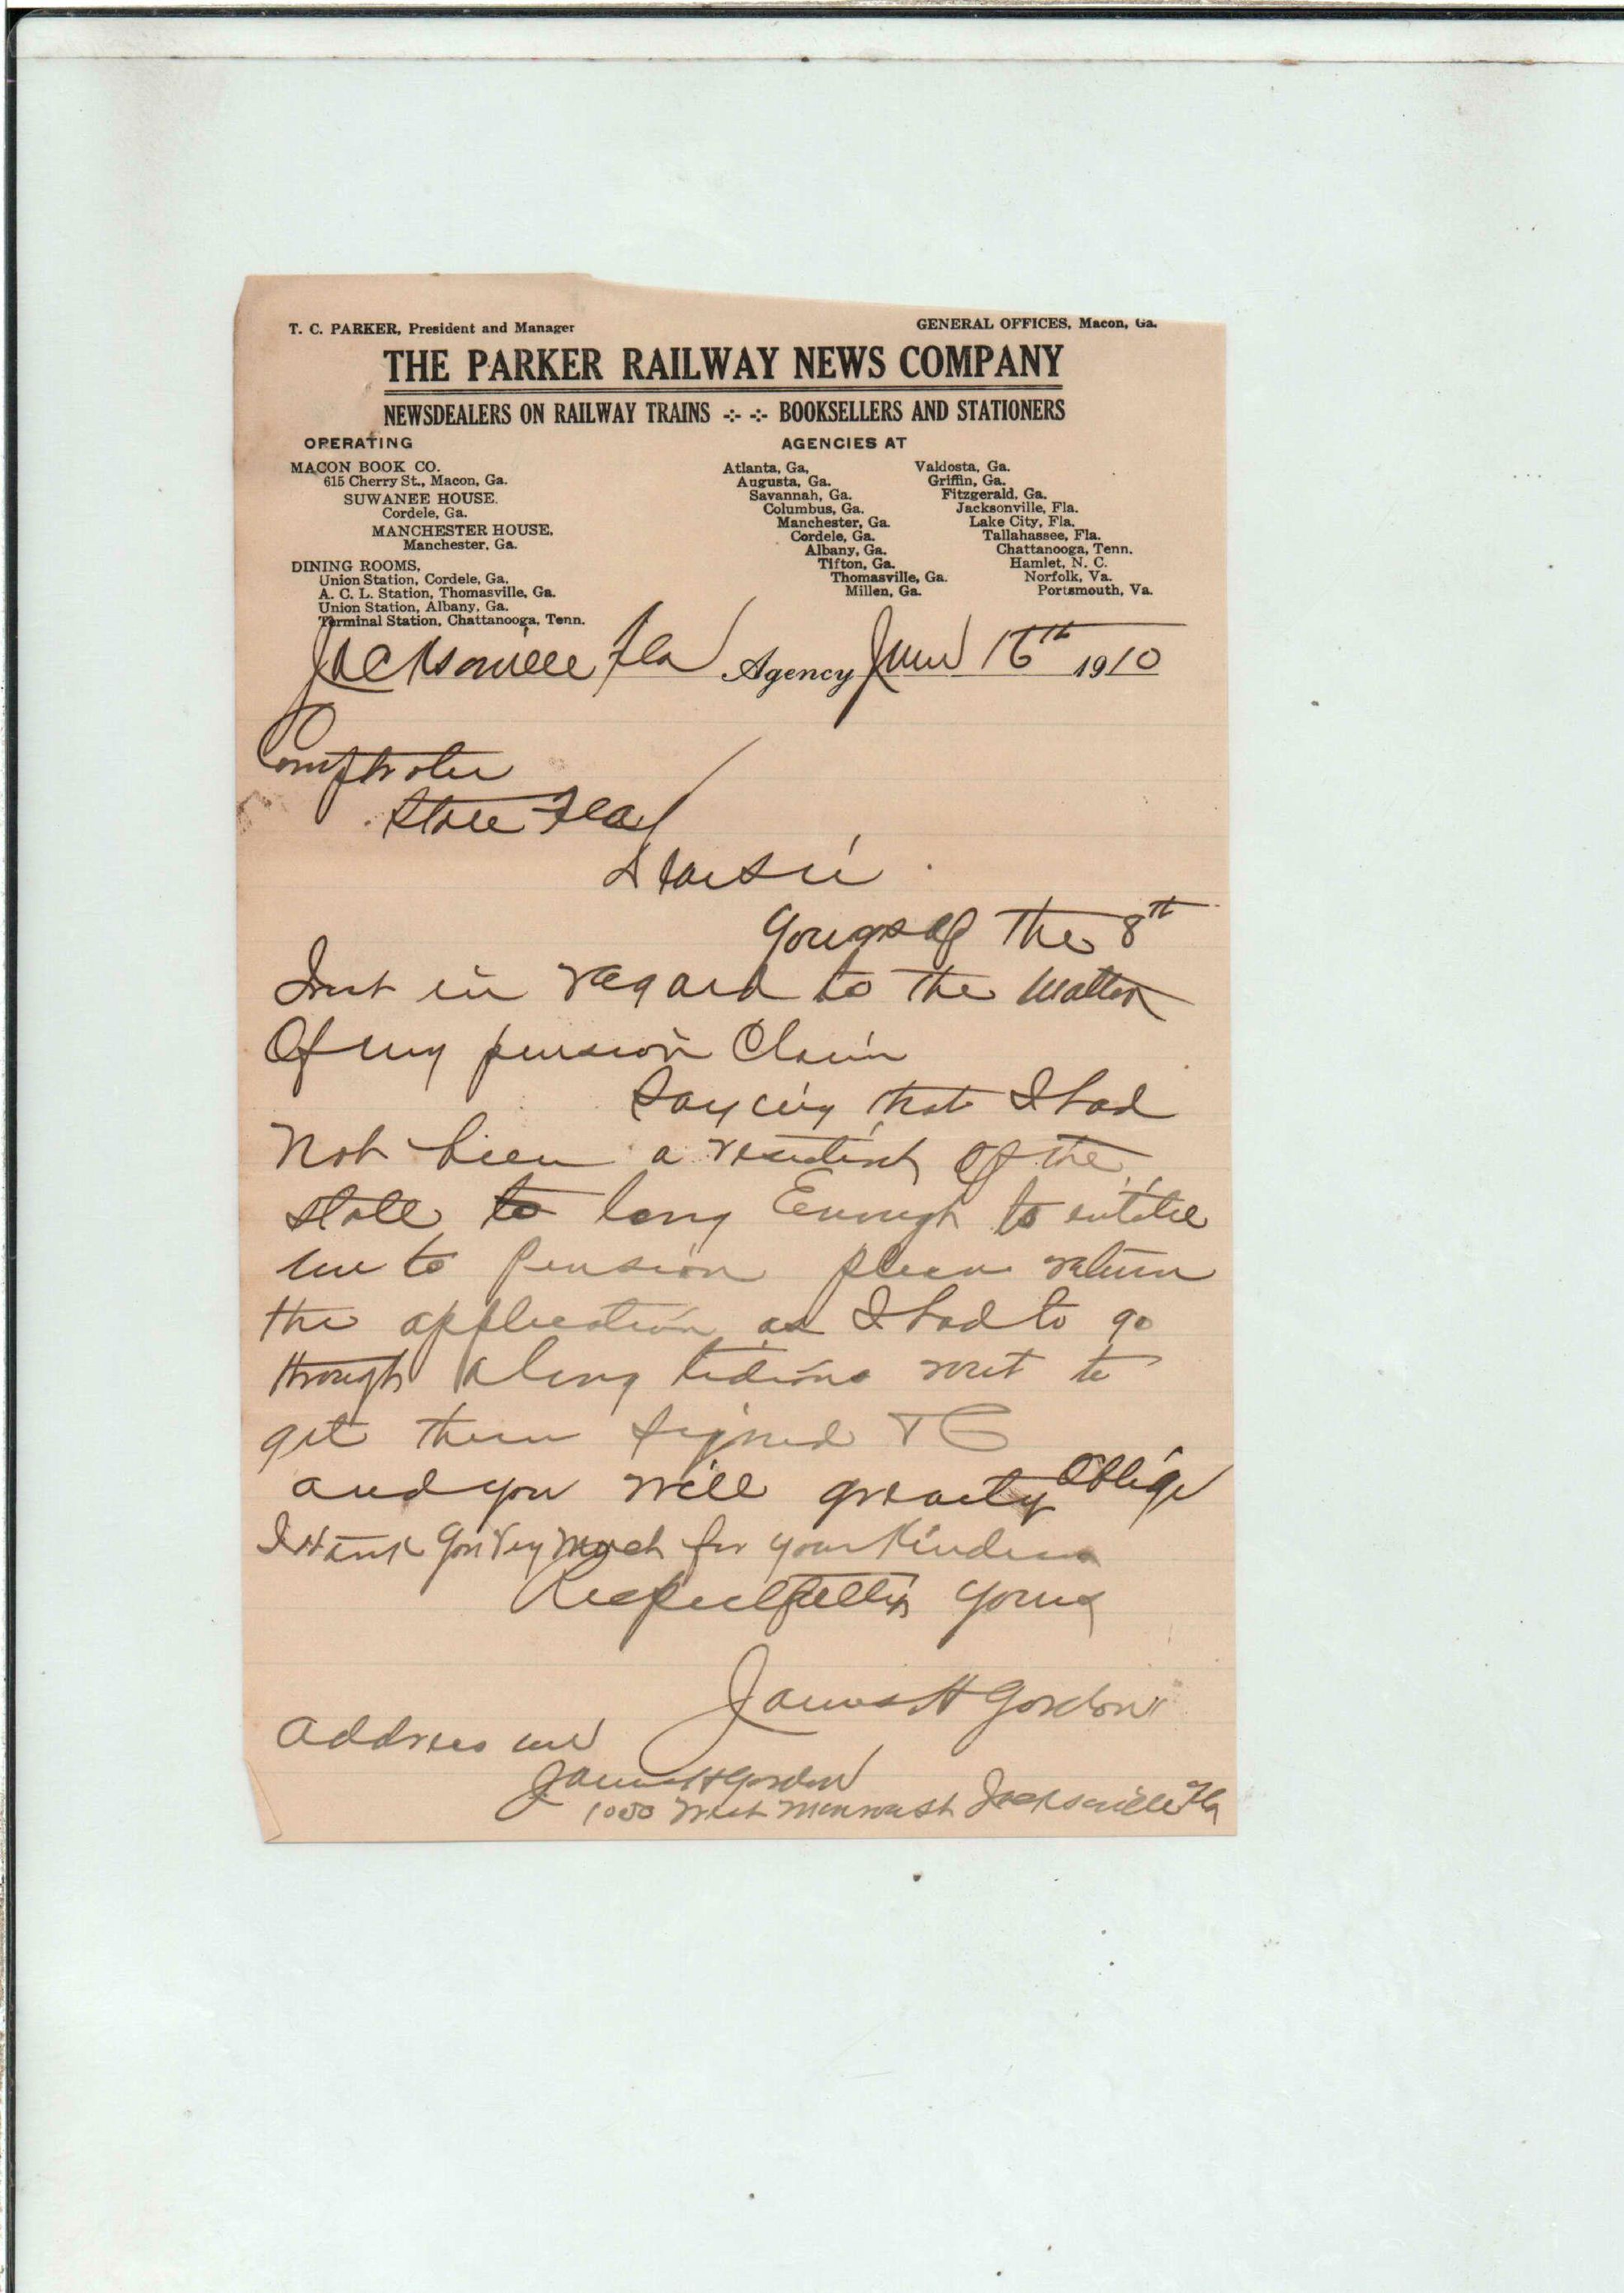 T. C. PARKER, President and Manager
GENERAL OFFICES, Macon, Ga.
THE PARKER RAILWAY NEWS COMPANY
NEWSDEALERS ON RAILWAY TRAINS -:- -:- BOOKSELLERS AND STATIONERS
OPERATING
MACON BOOK CO.
615 Cherry St., Macon, Ga.
SUWANEE HOUSE.
Cordele, Ga.
MANCHESTER HOUSE,
Manchester, Ga.
DINING ROOMS,
Union Station, Cordele, Ga.
A. C. L. Station, Thomasville, Ga.
Union Station, Albany, Ga.
Terminal Station, Chattanooga, Tenn.
AGENCIES AT
Atlanta, Ga,
Augusta, Ga.
Savannah, Ga.
Columbus, Ga.
Manchester, Ga.
Cordele, Ga.
Albany, Ga.
Tifton, Ga.
Thomasville, Ga.
Millen, Ga.
Valdosta, Ga.
Griffin, Ga.
Fitzgerald, Ga.
Jacksonville, Fla.
Lake City, Fla.
Tallahassee, Fla.
Chattanooga, Tenn.
Hamlet, N. C.
Norfolk, Va.
Portsmouth, Va.
Jacksonville Fla Agency June 16th 1910
Comptroler
State Fla
Dear Sir
Yours of the 8th
Inst in regard to the Matter
Of my pension Claim
Saycing that I had
Not been a resident of the
state to long Enough to entitle
me to Pension please return
the application as I had to go
through a long tedious rout to
get them signed
and you will greatly Oblige
I thank you very Much for your Kindness
Respectfully yours
James H Gordon
Address me
James H Gordon
1050 West Monroe St Jacksonville Fla